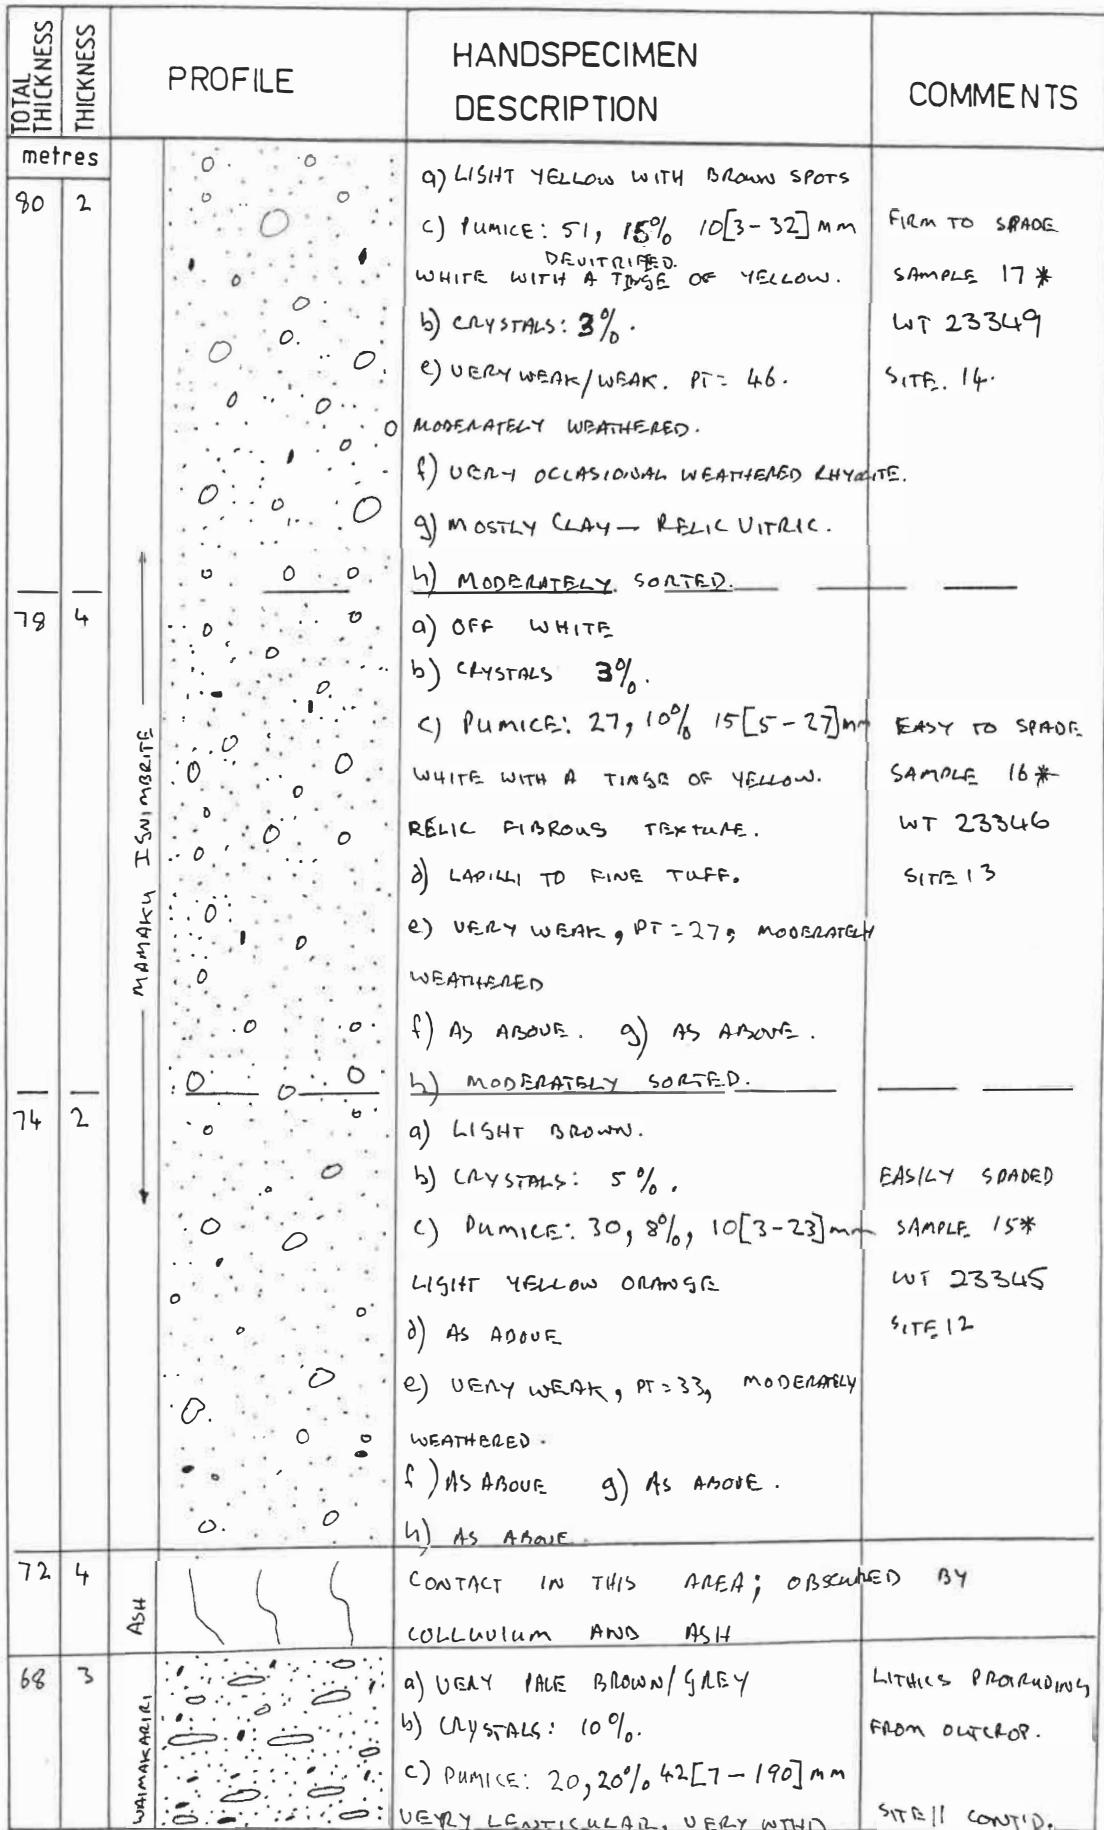 TOTAL THICKNESS
THICKNESS
PROFILE
HANDSPECIMEN DESCRIPTION
COMMENTS
metres
MAMAKU IGNIMBRITE
80 2
a) LIGHT YELLOW WITH BROWN SPOTS
c) PUMICE: 51, 15% 10[3-32] mm
DEVITRIFIED.
WHITE WITH A TINGE OF YELLOW.
b) CRYSTALS: 3%.
e) VERY WEAK/WEAK. PT= 46.
MODERATELY WEATHERED.
f) VERY OCCASIONAL WEATHERED RHYOLITE.
g) MOSTLY CLAY – RELIC VITRIC.
h) MODERATELY SORTED.
FIRM TO SPADE
SAMPLE 17 *
WT 23349
SITE. 14.
78 4
a) OFF WHITE
b) CRYSTALS 3%.
c) PUMICE: 27, 10% 15[5-27]mm
WHITE WITH A TINGE OF YELLOW.
RELIC FIBROUS TEXTURE.
d) LAPILLI TO FINE TUFF.
e) VERY WEAK, PT=27, MODERATELY
WEATHERED
f) AS ABOVE. g) AS ABOVE.
h) MODERATELY SORTED.
EASY TO SPADE
SAMPLE 16*
WT 23346
SITE 13
74 2
a) LIGHT BROWN.
b) CRYSTALS: 5%.
c) PUMICE: 30, 8%, 10[3-23]mm
LIGHT YELLOW ORANGE
d) AS ABOVE
e) VERY WEAK, PT=33, MODERATELY
WEATHERED.
f) AS ABOVE g) AS ABOVE.
h) AS ABOVE.
EASILY SPADED
SAMPLE 15*
WT 23345
SITE 12
72 4
ASH
CONTACT IN THIS AREA; OBSCURED BY
COLLUVIUM AND ASH
68 3
WAIMAKARIRI
a) VERY PALE BROWN/GREY
b) CRYSTALS: 10%.
c) PUMICE: 20, 20% 42[7-190] mm
VERY LENTICULAR, VERY WTHD
LITHICS PROTRUDING
FROM OUTCROP.
SITE 11 CONT'D.